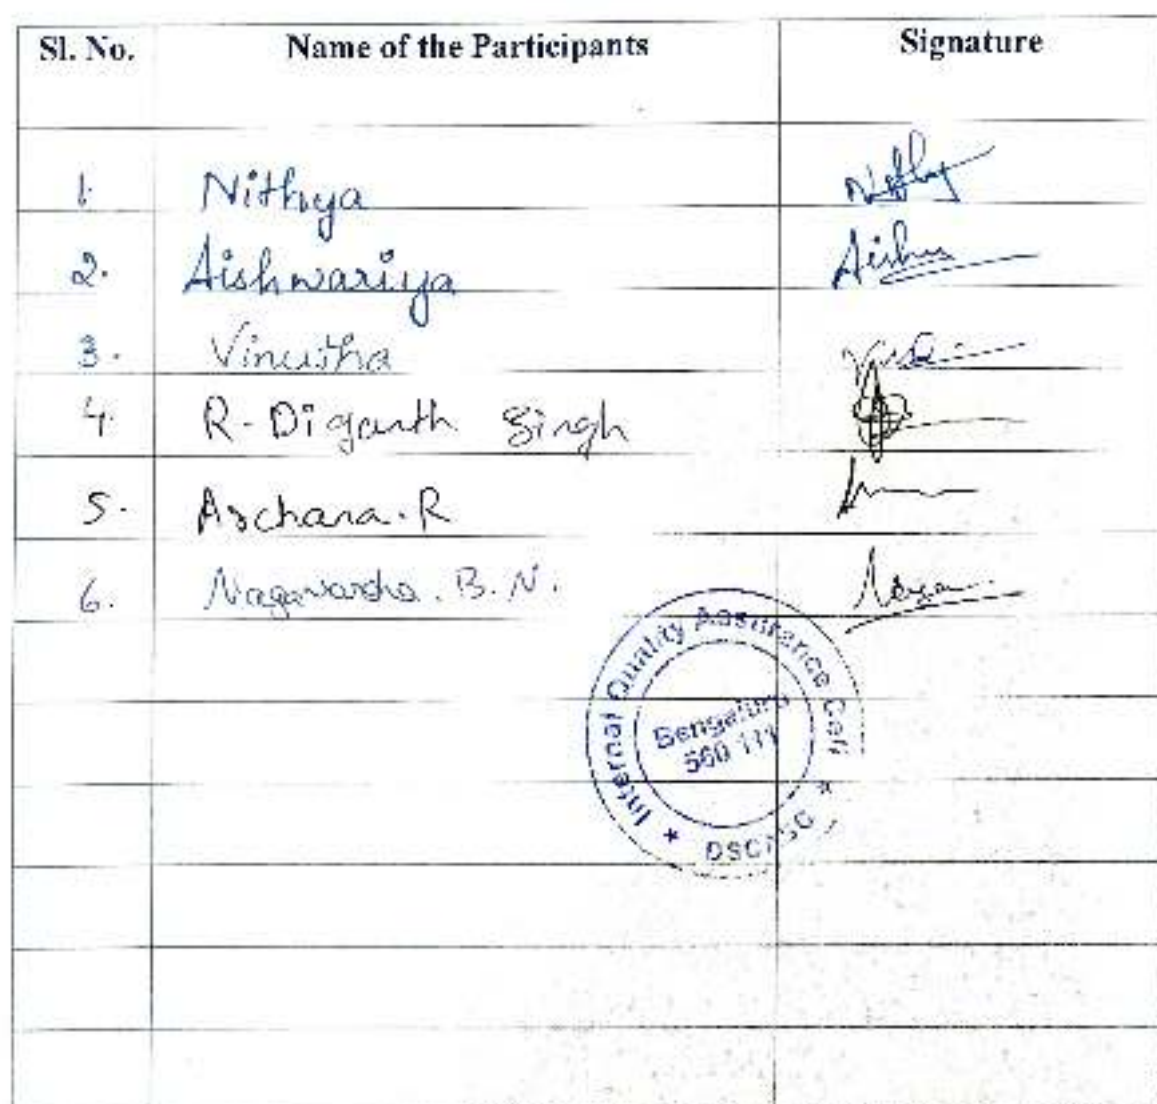 Sl. No. Name of the Participants Signature
1. Nithya Nithy
2. Aishwariya Aishu
3. Vinutha
4. R. Diganth Singh
5. Archana. R
6. Nagavarsha. B. N.
★ Internal Quality Assurance Cell ★
Bengaluru
560 111
DSCASC